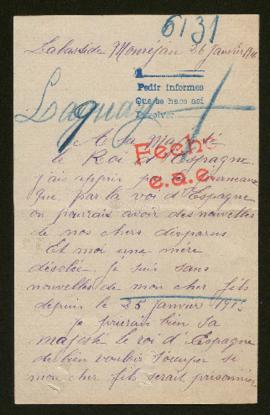 6131
Labastide Monrejau 26 janvier 191
1
Pedir informes
Que se hace así
Laguay
A Sa Majesté
Fecho
le Roi d'Espagne
e.a.e.
j'ais appris par les journeaux
que par la voi d'Espagne
on pourait avoir des nouvelles
de nos chers disparus
Et moi une mère
désolée je suis sans
nouvelles de mon cher fils
depuis le 25 janvier 1915
je prierais bien Sa
majesté le roi d'Espagne
de bien vouloir si
mon cher fils serait prisonnier